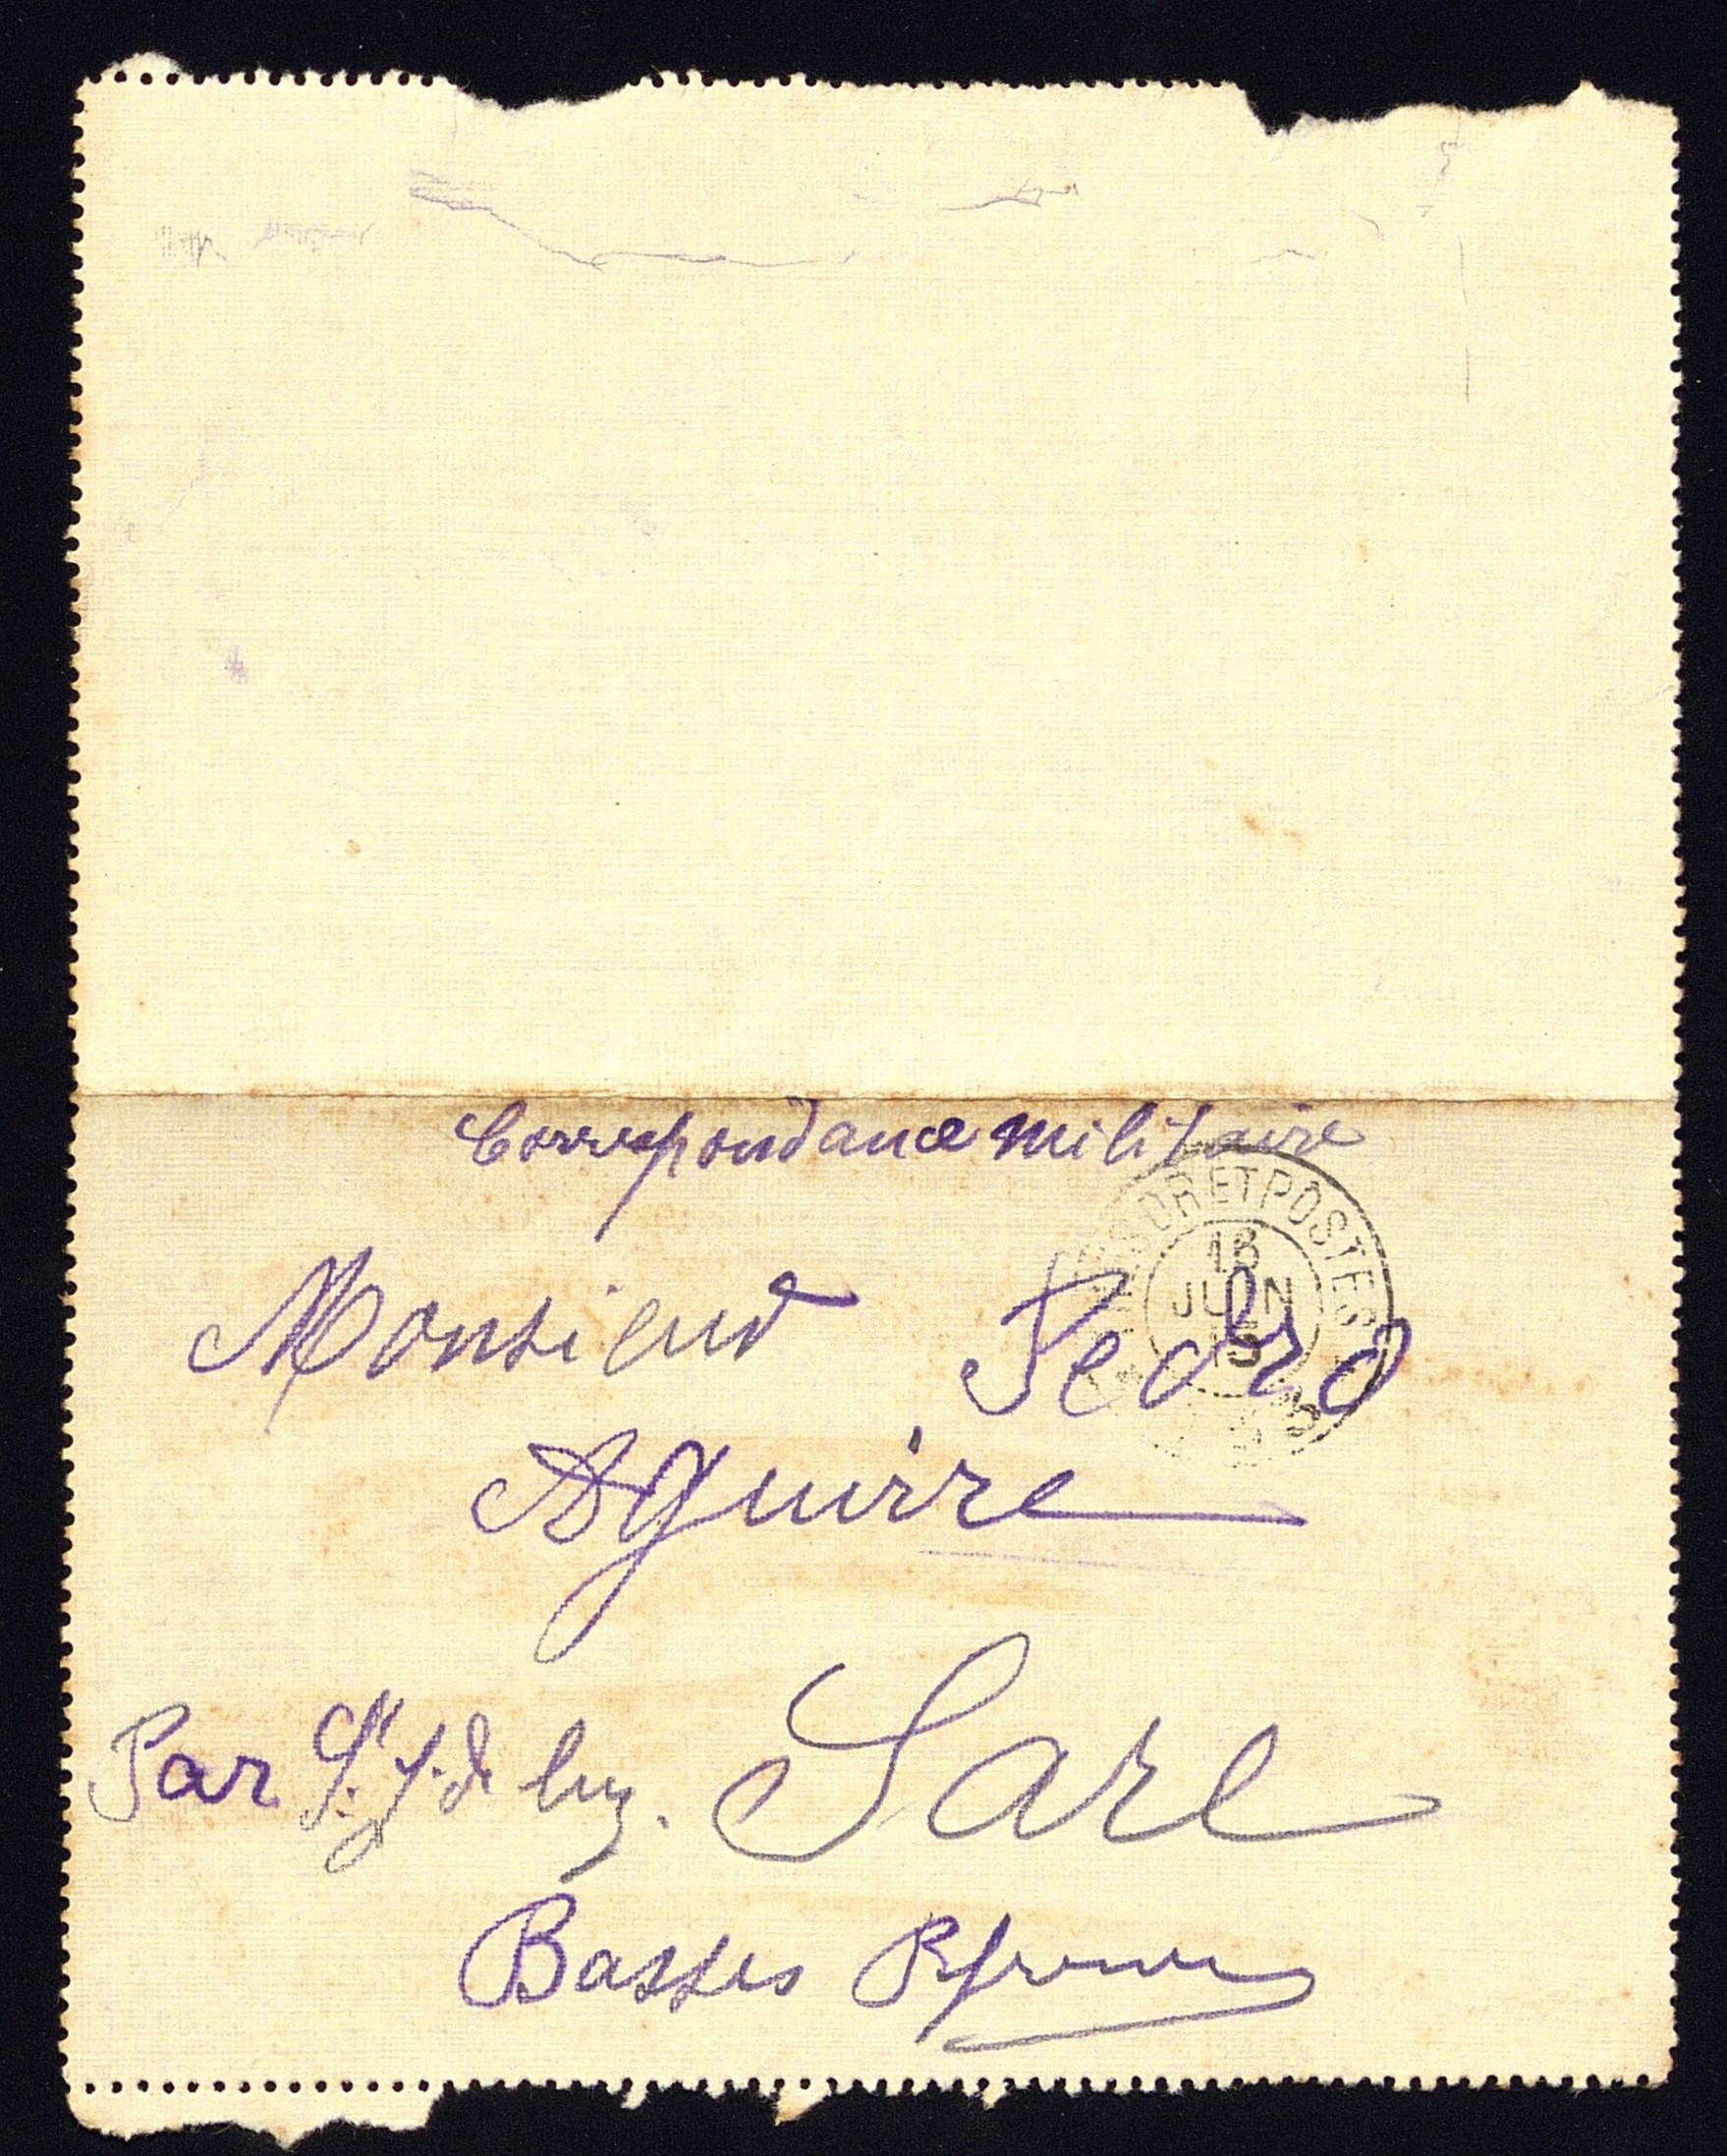 Correspondance militaire
TRESOR ET POSTES
16
JUIN
15
Monsieur Pedro
Aguirre
Par St J. de luz. Sare
Basses Pyrenees